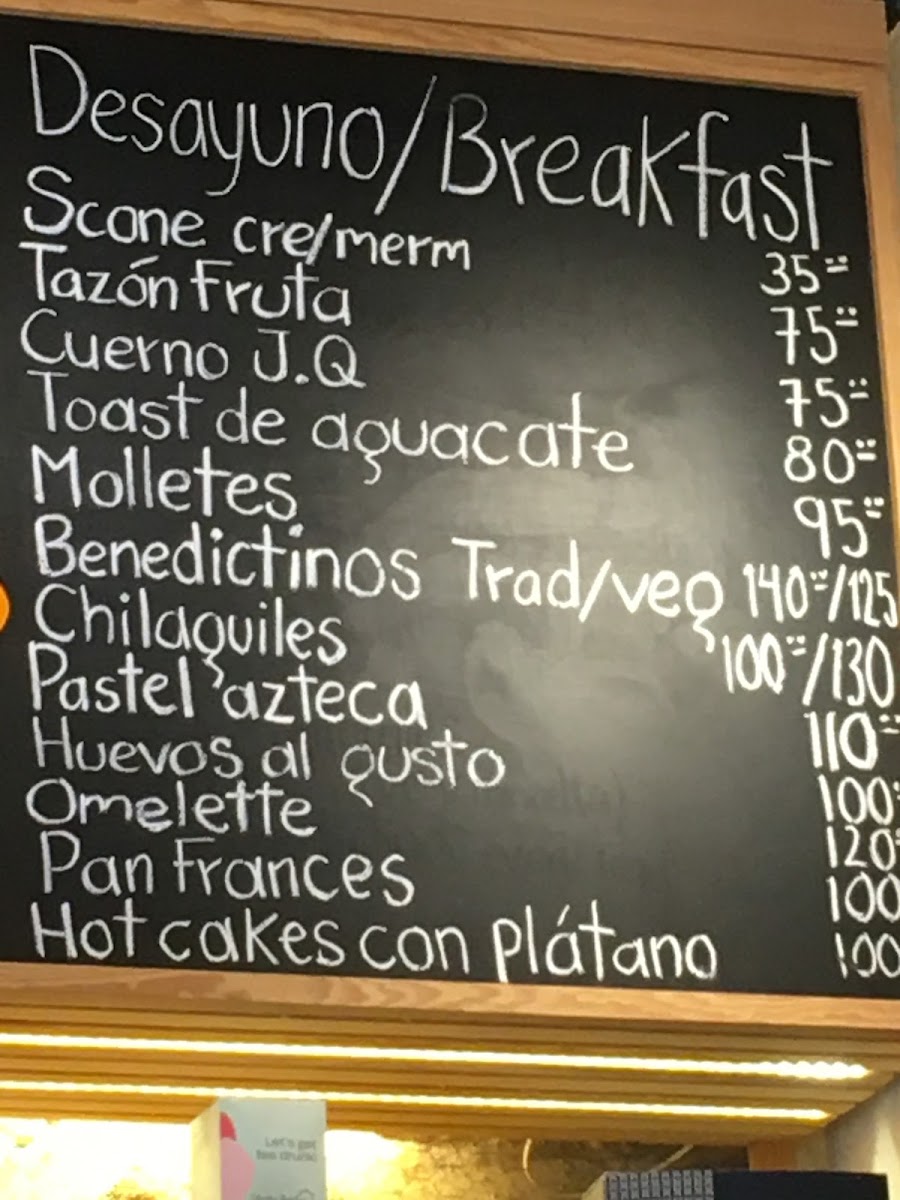 Desayuno/Breakfast
Scone cre/merm 35=
Tazón Fruta 75=
Cuerno J.Q 75=
Toast de aguacate 80=
Molletes 95=
Benedictinos Trad/veg 140=/125
Chilaquiles 100=/130
Pastel azteca 110=
Huevos al gusto 100=
Omelette 120=
Pan Frances 100
Hot cakes con plátano 100
Let's get